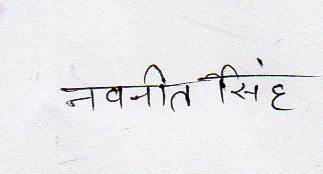 नवनीत सिंह